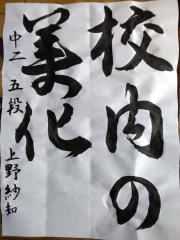 校内の
美化
中二 五段 上野紗知